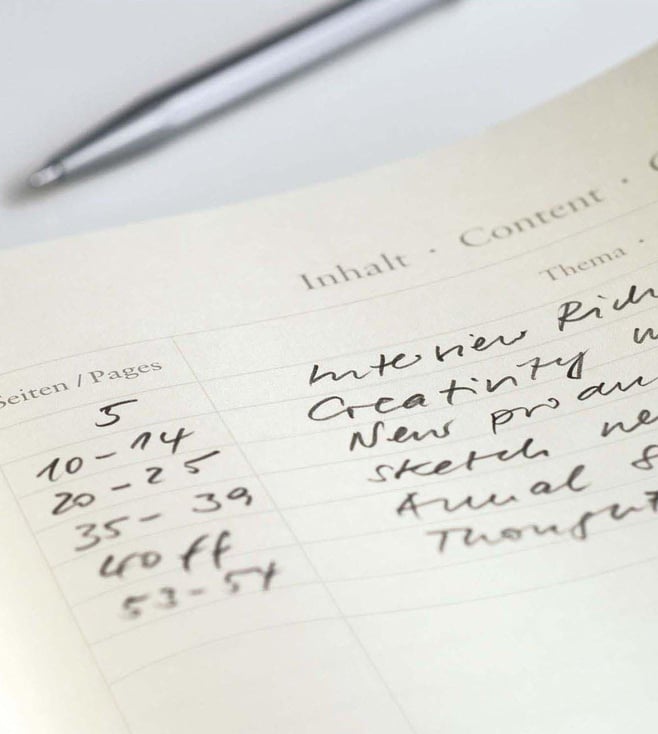 Inhalt · Content ·
Seiten / Pages Thema ·
5 Interview Rich
10 - 14 Creativity
20 - 25 New produ
35 - 39 sketch ne
40 ff Annual
53 - 54 Thought